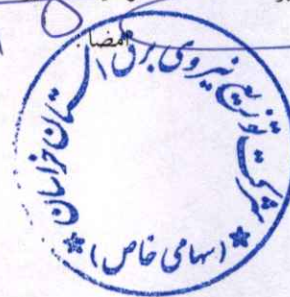 امضا
شرکت توزیع نیروی برق استان خراسان
(سهامی خاص)